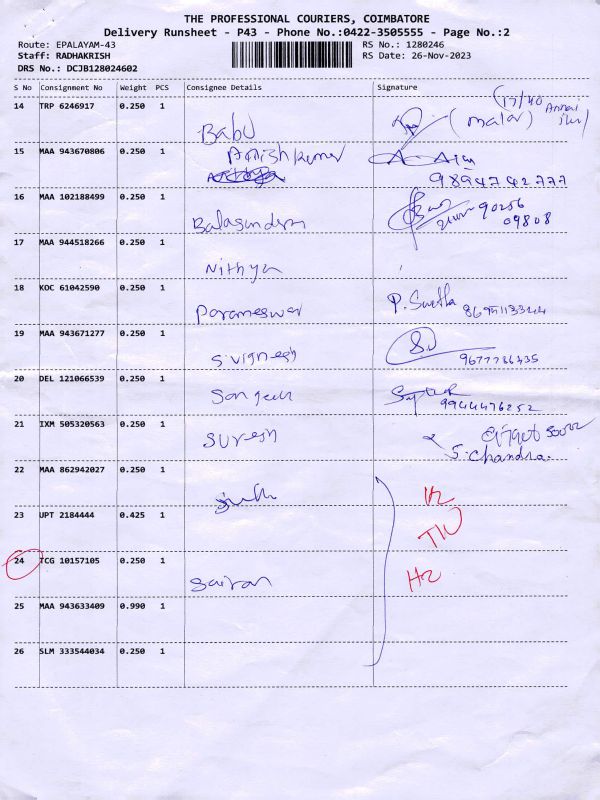 THE PROFESSIONAL COURIERS, COIMBATORE
Delivery Runsheet - P43 - Phone No.:0422-3505555 - Page No.:2
Route: EPALAYAM-43 RS No.: 1280246
Staff: RADHAKRISH RS Date: 26-Nov-2023
DRS No.: DCJB128024602
S No Consignment No Weight PCS Consignee Details Signature
14 TRP 6246917 0.250 1 Babu (malar) 17/40 Annai
15 MAA 943670806 0.250 1 Anishkumar
9894742777
16 MAA 102188499 0.250 1 Balasundram 90256
09808
17 MAA 944518266 0.250 1 Nithya
18 KOC 61042590 0.250 1 Parameswar P. Swetha
19 MAA 943671277 0.250 1 S.vignesh 9677786435
20 DEL 121066539 0.250 1 Sangeeth 9944476252
21 IXM 505320563 0.250 1 Suresh
S. Chandra.
22 MAA 862942027 0.250 1
23 UPT 2184444 0.425 1
24 TCG 10157105 0.250 1 Sairan
25 MAA 943633409 0.990 1
26 SLM 333544034 0.250 1